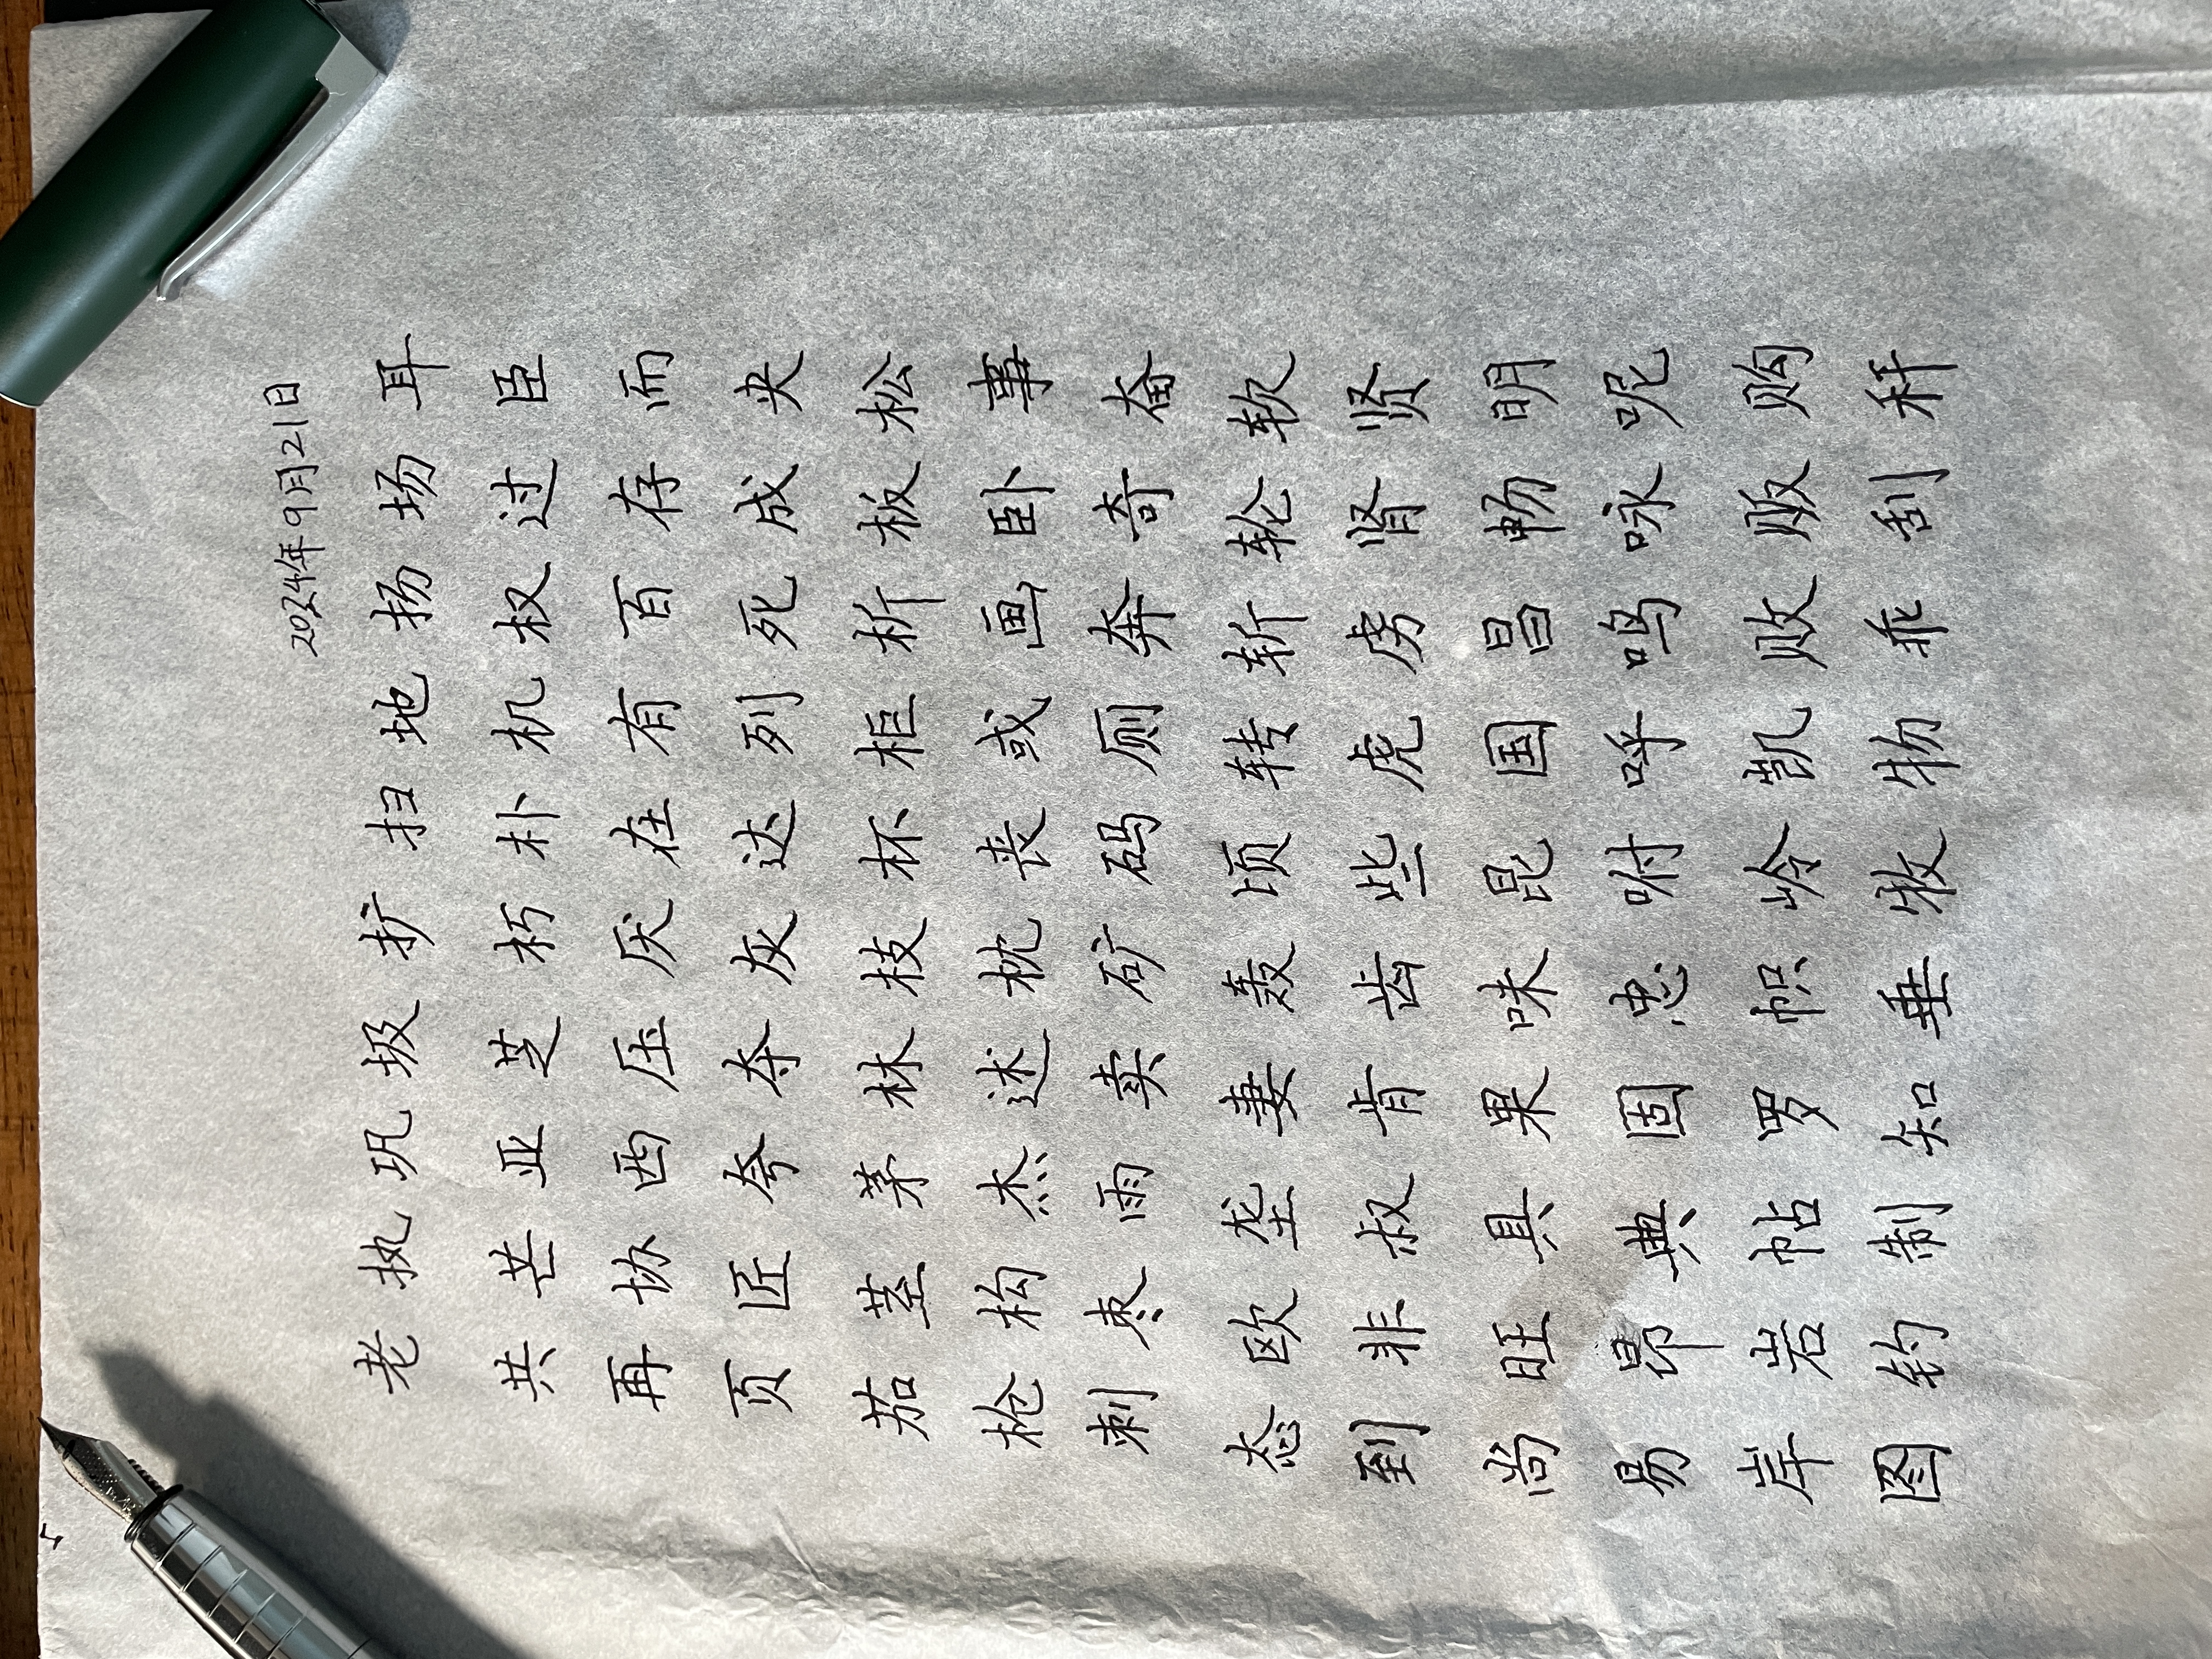 2024年9月21日
老执巩圾扩扫地扬场耳
共芒亚芝朽朴机权过臣
再协西压厌在有百存而
页匠夸夺灰达列死成夹
茄茎茅林枝杯柜析板松
枪构杰述枕丧或画卧事
刺枣雨卖矿码厕奔奇奋
态欧垄妻轰顷转斩轮软
到非叔肯齿些虎虏肾贤
尚旺具果味昆国昌畅明
易昂典固忠咐呼鸣咏呢
岸岩帖罗帜岭凯败贩购
图钓制知垂牧物乖刮秆